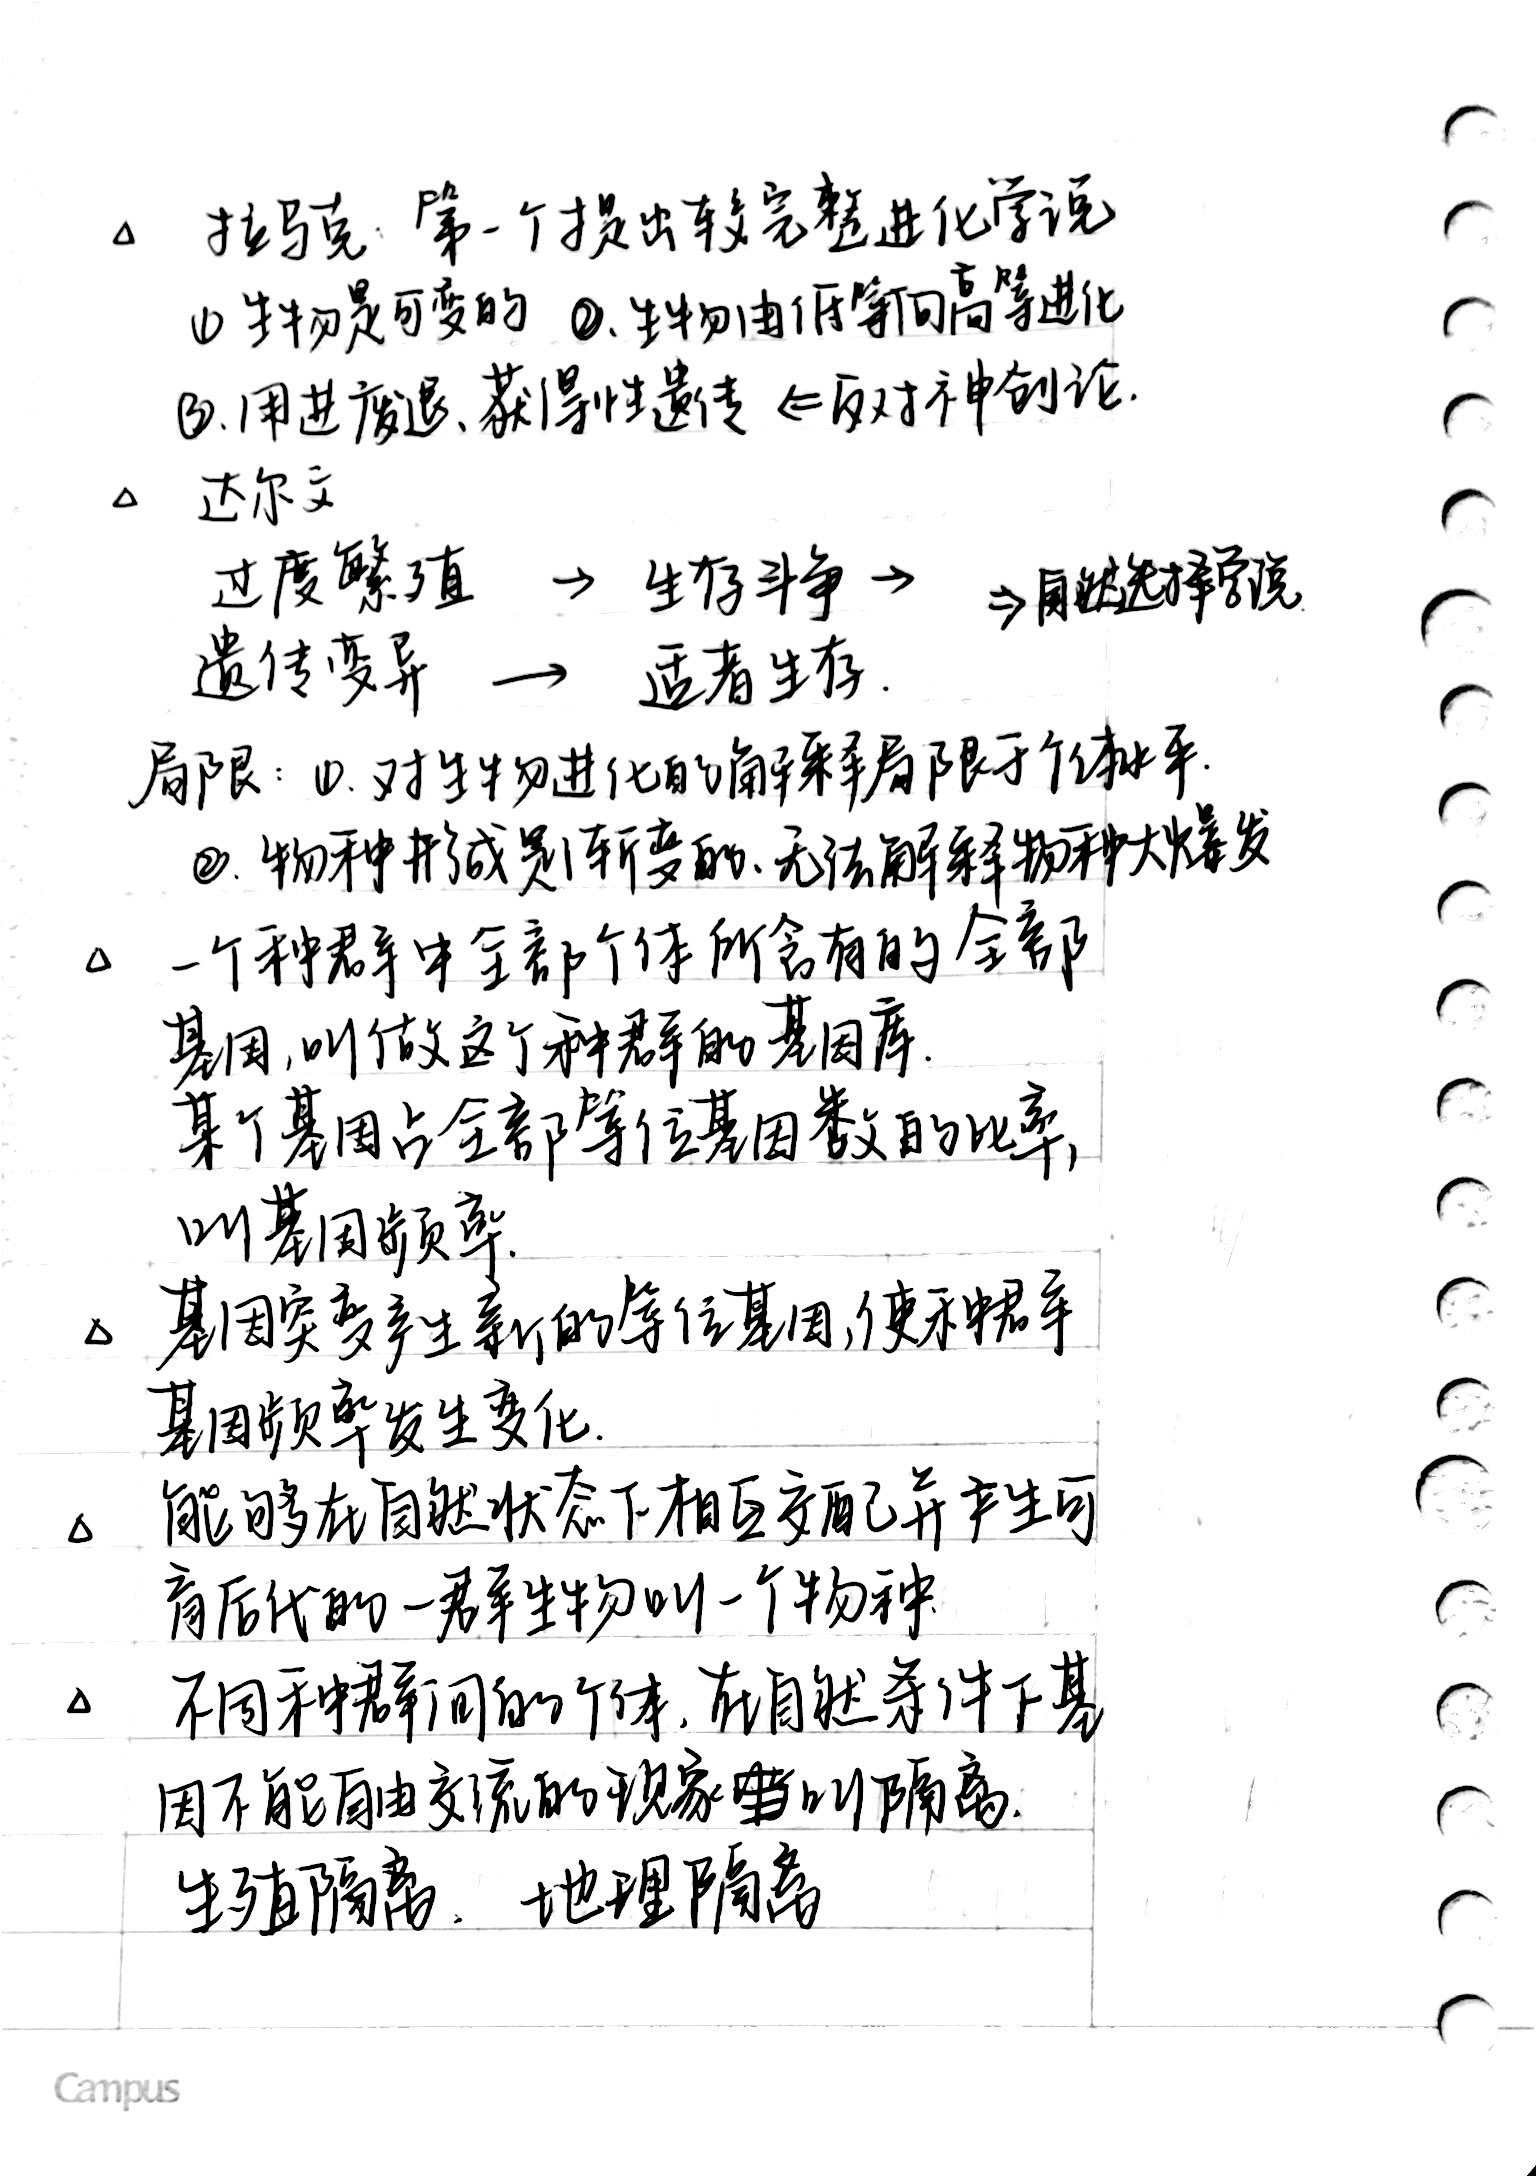 △ 拉马克：第一个提出较完整进化学说
① 生物是可变的 ②、生物由低等向高等进化
③、用进废退、获得性遗传 ⇐反对神创论.
△ 达尔文
过度繁殖 → 生存斗争 → ⇒自然选择学说.
遗传变异 → 适者生存.
局限: ①. 对生物进化的解释局限于个体水平.
②. 物种形成是渐变的、无法解释物种大爆发
△ 一个种群中全部个体所含有的全部
基因,叫做这个种群的基因库.
某个基因占全部等位基因数的比率,
叫基因频率.
△ 基因突变产生新的等位基因,使种群
基因频率发生变化.
△ 能够在自然状态下相互交配并产生可
育后代的一群生物叫一个物种.
△ 不同种群间的个体,在自然条件下基
因不能自由交流的现象叫隔离.
生殖隔离. 地理隔离
Campus